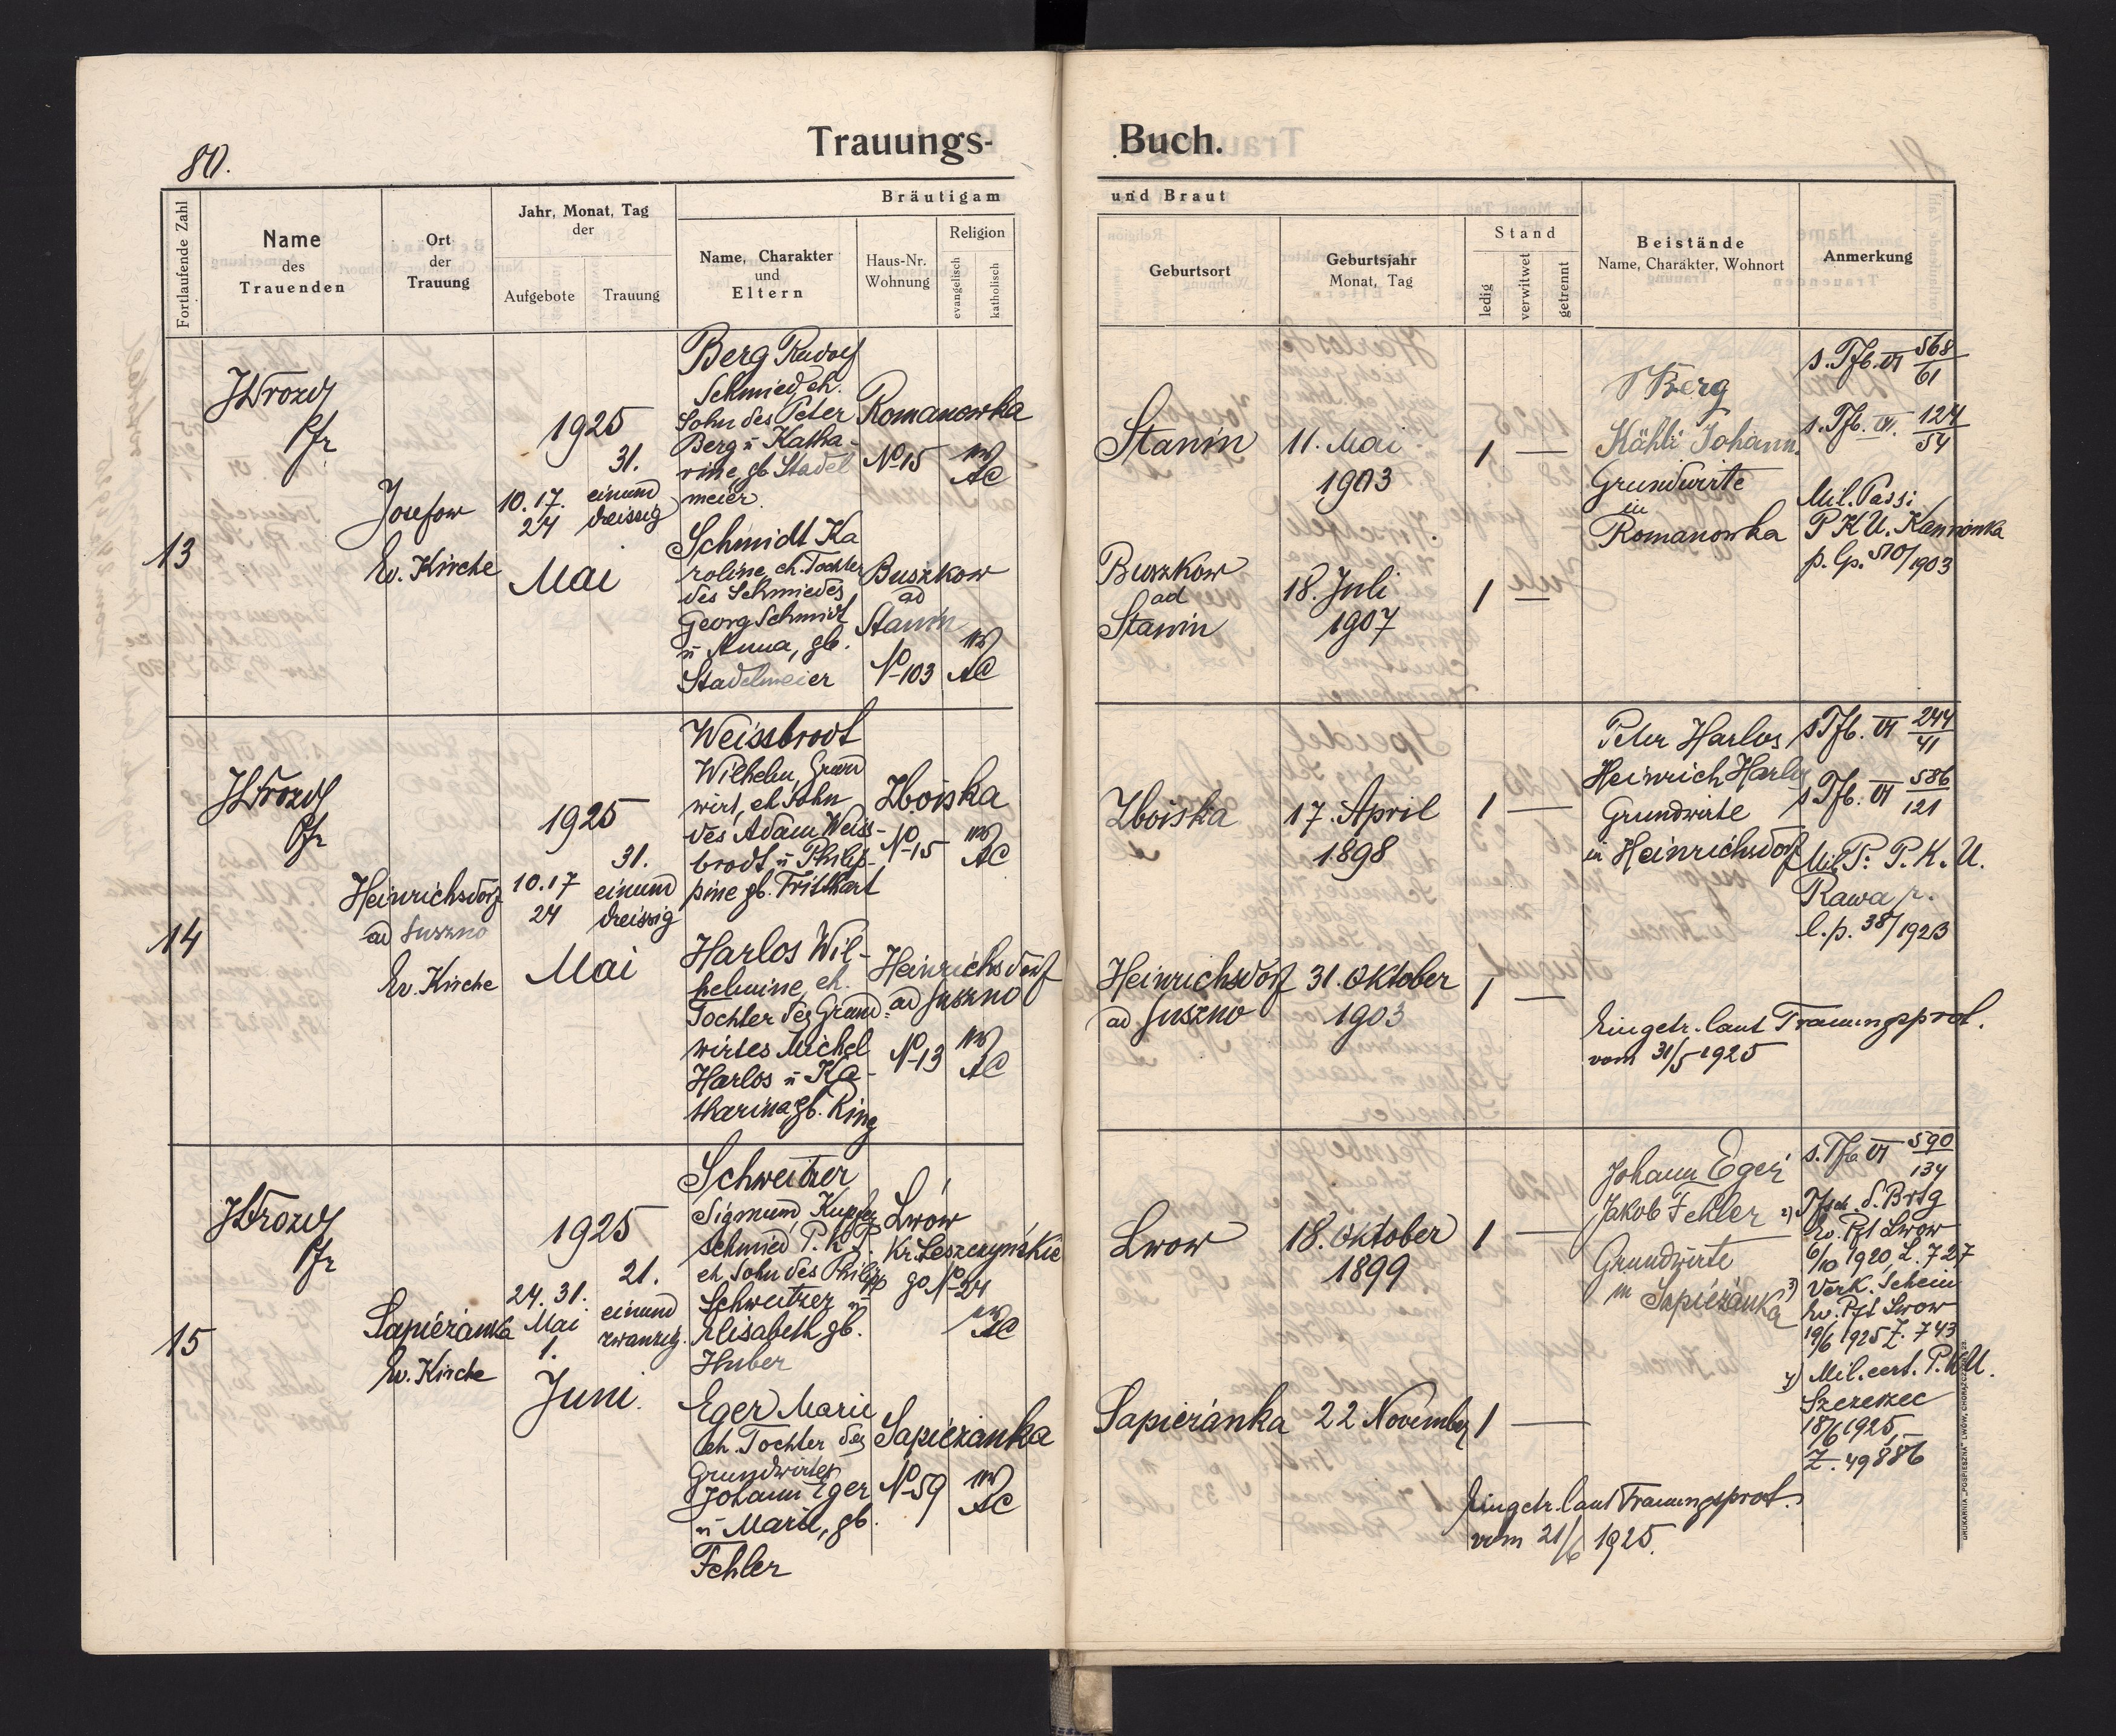 80.
Trauungs-
Buch.
Fortlaufende Zahl
Name
des
Trauenden
Ort
der
Trauung
Jahr, Monat, Tag
der
Aufgebote
Trauung
Bräutigam
Name, Charakter
und
Eltern
Haus-Nr.
Wohnung
Religion
evangelisch
katholisch
und Braut
Geburtsort
Geburtsjahr
Monat, Tag
Stand
ledig
verwitwet
getrennt
Beistände
Name, Charakter, Wohnort
Anmerkung
13
Pfr
Josefow
Ev. Kirche
1925
10. 17.
24
31.
einund
dreissig
Mai
Berg Rudolf
Schmied, eh.
Sohn des Peter
Berg u Katha-
rine, gb. Stadel
meier
Romanowka
No 15
AC
Schmidt Ka
roline, eh. Tochter
des Schmiedes
Georg Schmidt
u Anna, gb.
Stadelmeier
Buszkow
ad
Stanin
No 103
AC
Stanin
11. Mai
1903
1 —
Buszkow
ad
Stanin
18. Juli
1907
1 —
Berg
Kähli Johann
Grundwirte
in
Romanowka
s. Tfb. VI 568/61
s. Tfb. VI. 124/54
Mil. Passi
P.K.U. Kamionka
p. lp. 510/1903
14
Pfr
Heinrichsdorf
ad Suszno
Ev. Kirche
1925
10. 17
24
31.
einund
dreissig
Mai
Weissbrodt
Wilhelm, Grund
wirt, eh Sohn
des Adam Weiss-
brodt u Philip-
pine gb. Trittkart
Zboiska
No 15
AC
Harlos Wil-
helmine, eh.
Tochter des Grund-
wirtes Michel
Harlos u Ka-
tharina, gb. Ring
Heinrichsdorf
ad Suszno
No 13
AC
Zboiska
17. April
1898
1 —
Heinrichsdorf
ad Suszno
31. Oktober
1903
1 —
Peter Harlos
Heinrich Harlos
Grundwirte
in Heinrichsdorf
s Tfb. VI 244/41
s Tfb. VI 586/121
Mil. P. P.K.U.
Rawa r.
l. p. 38/1923
Eingetr. laut Trauungsprot.
vom 31/5 1925
15
Pfr
Sapiezanka
Ev. Kirche
1925
24. 31.
Mai
1.
Juni
21.
einund
zwanzig.
Schweitzer
Sigmund, Kupfer
schmied P.K.P.
eh. Sohn des Philipp
Schweitzer u
Elisabeth gb.
Huber
Lwów
Kr. Leszczyńskie
go No 24
AC
Eger Marie
eh. Tochter des
Grundwirtes
Johann Eger
u Marie, gb.
Fehler
Sapiezanka
No 59
AC
Lwow
18. Oktober
1899
1 —
Sapiezanka
22 November
1 —
Johann Eger
Jakob Fehler
Grundwirte
in Sapiezanka
s. Tfb VI 590/134
2)
Ev. Pft Lwow
6/10 1920, L. 727
3) Verk. Schein
Ev. Pft Lwow
19/6 1925 Z. 743
4) Mil. cert. P.K.U.
Szczerzec
18/6 1925,
Z. 49886
Eingetr. laut Trauungsprot.
vom 21/6 1925.
DRUKARNIA „POSPIESZNA" LWÓW, CHORĄŻCZYZNA